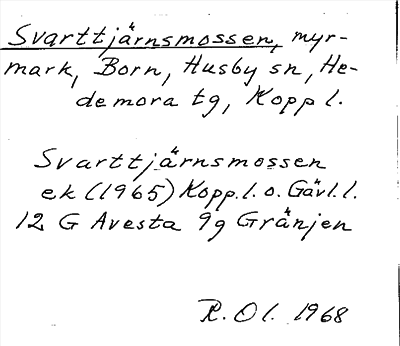 Svarttjärnsmossen, myr-
mark, Born, Husby sn, He-
demora tg, Kopp l.
Svarttjärnsmossen
ek (1965) Kopp. l. o. Gävl. l.
12 G Avesta 9g Gränjen
R. Ol. 1968